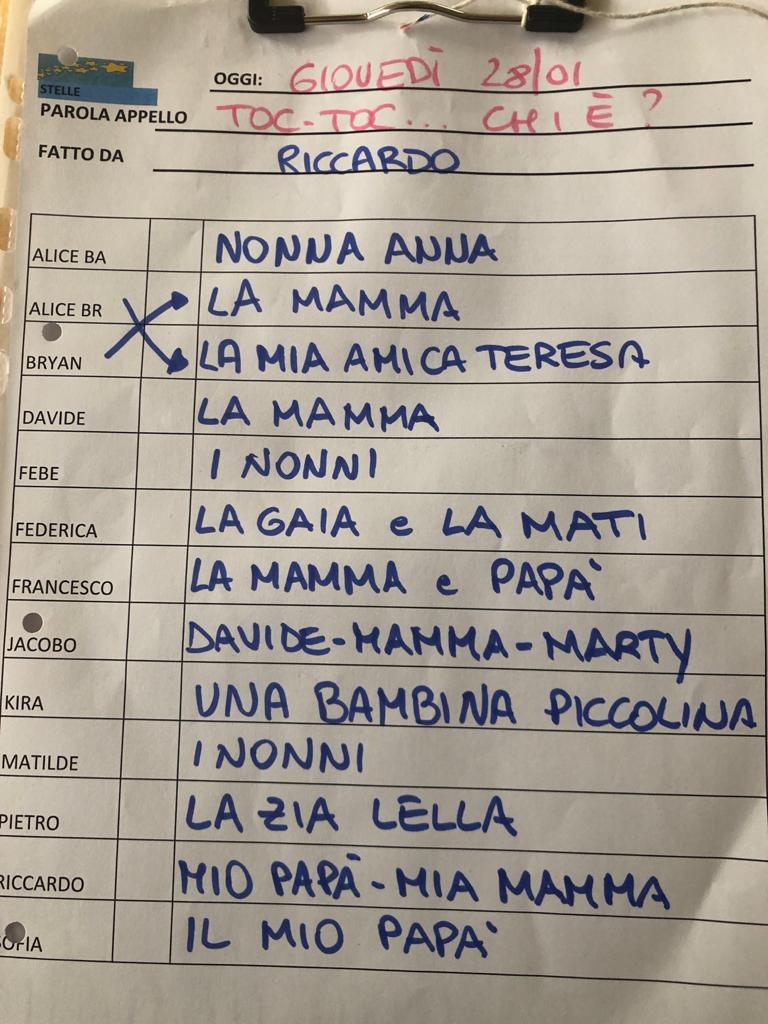 STELLE
OGGI: GIOVEDÌ 28/01
PAROLA APPELLO TOC-TOC... CHI È?
FATTO DA RICCARDO
ALICE BA NONNA ANNA
ALICE BR LA MAMMA
BRYAN LA MIA AMICA TERESA
DAVIDE LA MAMMA
FEBE I NONNI
FEDERICA LA GAIA e LA MATI
FRANCESCO LA MAMMA e PAPÀ
JACOBO DAVIDE-MAMMA-MARTY
KIRA UNA BAMBINA PICCOLINA
MATILDE I NONNI
PIETRO LA ZIA LELLA
RICCARDO MIO PAPÀ-MIA MAMMA
SOFIA IL MIO PAPÀ